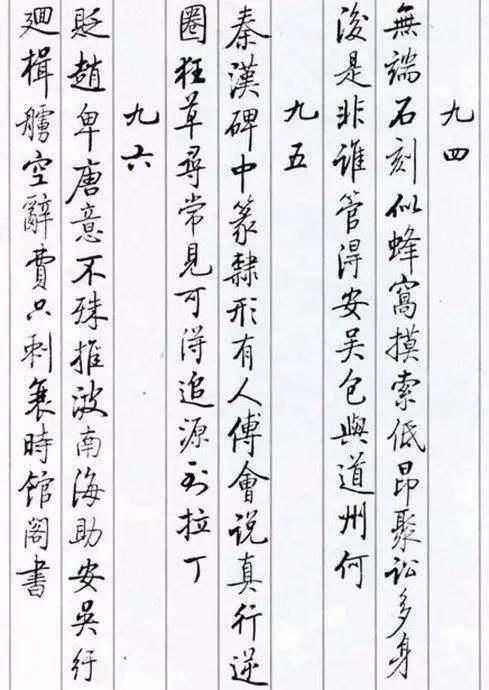 九四
無端石刻似蜂窩摸索低昂聚訟多身
後是非誰管得安吴包與道州何
九五
秦漢碑中篆隸形有人傅會說真行逆
圈狂草尋常見可得追源到拉丁
九六
貶趙卑唐意不殊推波南海助安吴紆
廻楫艫空辭費只刺衰時館閣書